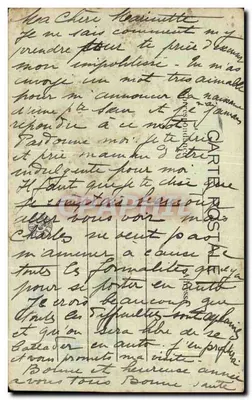 Ma Chère Mariette
Je ne sais comment m'y
prendre pour te prier d'excuser
mon impolitesse. Tu m'as
envoyé un mot très aimable
pour m'annoncer la naissance
d'une pte sœur et je n'ai jamais
répondu à ce mot.
Pardonne moi. Je te prie
et prie maman d'être
indulgente pour moi.
Il faut que je te dise que
je
aller vous voir mais
Charles ne veut pas
m'amener à cause de
toutes les formalités qu'il y a
pour se porter en auto
Je crois beaucoup que
toutes les difficultés
et qu'on sera libre de se
balader en auto. J'en profiterai
et vous promets ma visite.
Bonne et heureuse année
à vous tous Bonne santé
CARTE POSTALE
Correspondance